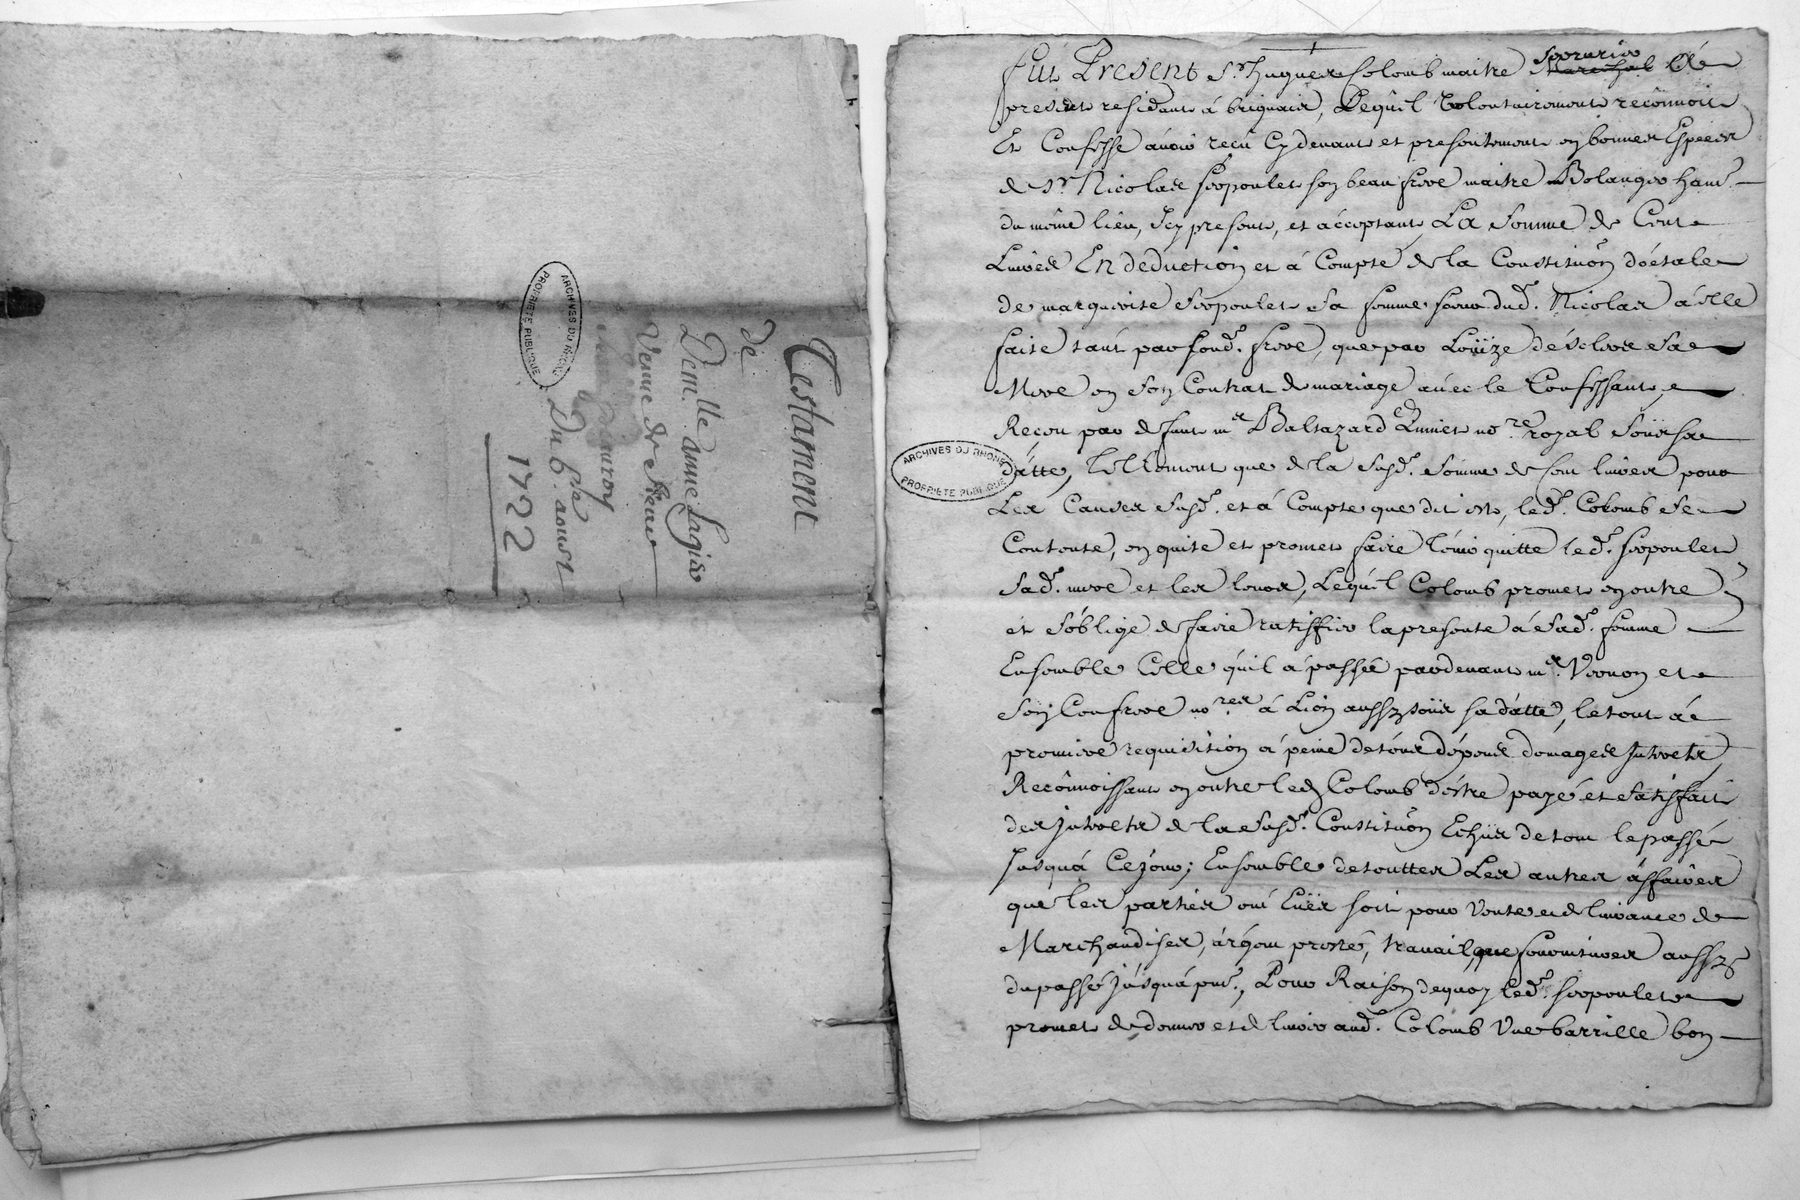 Testament
de
Dem.lle anne Lagier
Veuve de Sieur
Du 6.e aoust
1722
ARCHIVES DU RHONE
PROPRIÉTÉ PUBLIQUE
Fut Present Sr. hugues Colomb maitre
present residant á brignais, Lequel volontairement reconnoit
Et Confesse avoir reçu Cy devant et presentement en bonnes Espèces
de Sr. Nicolas frepoulet son beau frere maitre Bolanger
du même lieu, Icy present, et acceptant La Somme de Cent
Livres En déduction et á Compte de la Constituõn dotale
de marguerite frepoulet Sa femme soeur dud. Nicolas á Elle
faite tant par sond. frere, que par Loüize Sa
Mere en Son Contrat de mariage avec le Confessant,
Reçeu par defunt me Baltazard no.re royal Soüs sa
datte, tellement que de la susd. Somme de Cent livres pour
Les Causes susd. et á Compte que dit est, led. Colomb Se
Contente, en quite et promet faire tenir quitte led. frepoulet
Sad. mere et les leurs, Lequel Colomb promet en outre
et S'oblige de faire ratiffier la presente á Sad. femme
Ensemble Celle qu'il a passée pardevant me. Vernon et
Son Confrere no.res á Lion aussy soüs sa datte, le tout á
premiere requisition á peine de tous dépens domages Interets
Reconnoissant en outre led. Colomb d'être payé et Satisfait
des Interets de la Susd. Constituõn Echüs de tout le passé
Jusquá Ce jour; Ensemble de touttes Les autres affaires
que les parties ont Eües soit pour Vente et delivrance de
Marchandises, argent presté, travail, que fournitures aussy
du passé jusquá pnt., Pour Raison dequoy led. frepoulet
promet de donner et delivrer aud. Colomb Une barrille bon
ARCHIVES DU RHONE
PROPRIÉTÉ PUBLIQUE